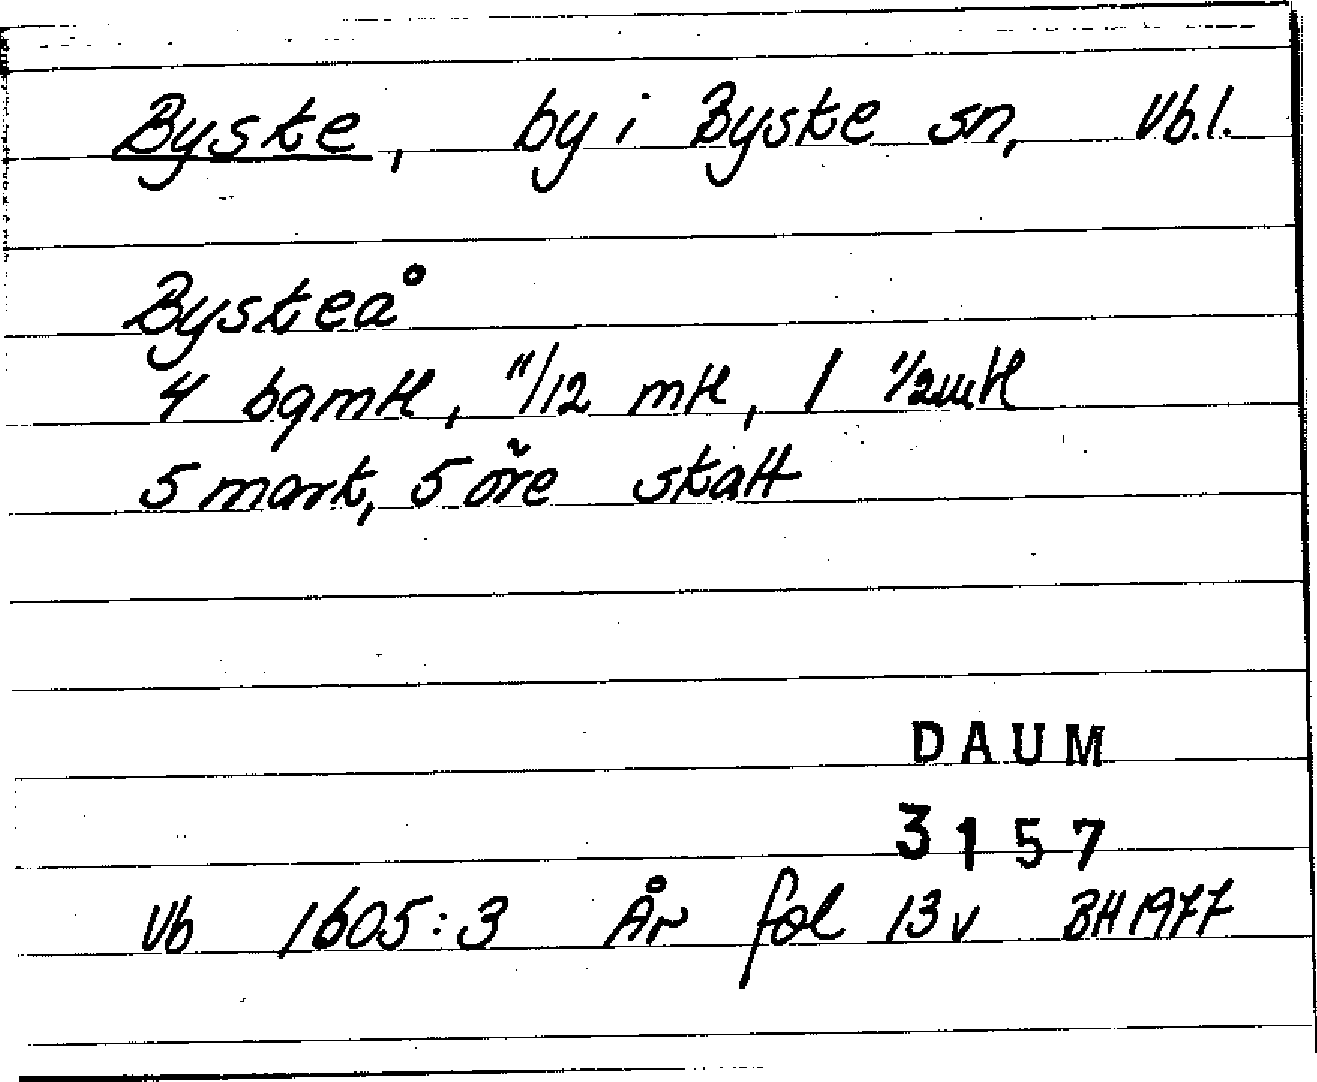 Byske, by i Byske sn, Vb.l.
Byskeå
4 bgmtl, 11/12 mtl, 1 1/2 mtl
5 mark, 5 öre skatt
DAUM
3157
Vb 1605:3 År fol 13v BH 1977